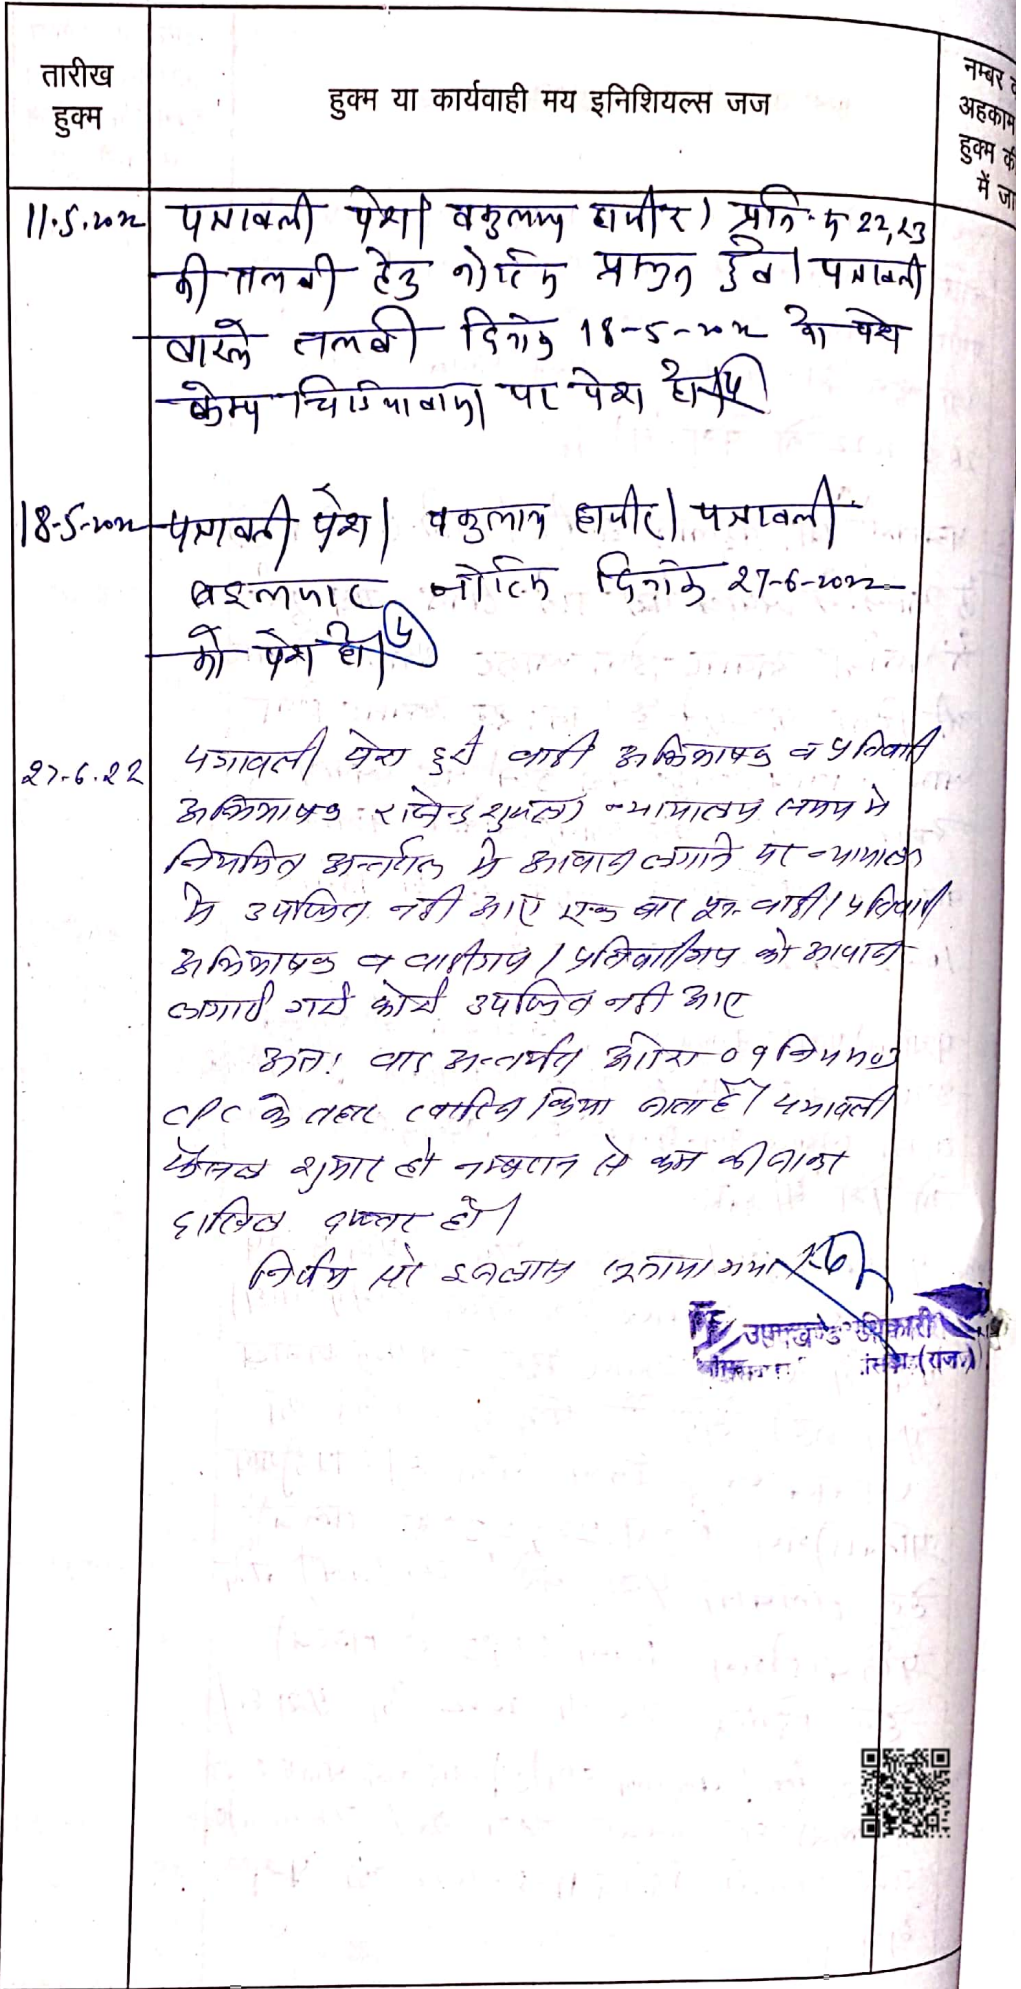 तारीख
हुक्म
हुक्म या कार्यवाही मय इनिशियल्स जज
नम्बर व
अहकाम
हुक्म की
में जा
11.5.2022 पत्रावली पेश। वकुलाय हाजीर। प्रति. क्र 22,23
की तलबी हेतु नोटिस प्राप्त हुवे। पत्रावली
वास्ते तलबी दिनांक 18-5-2022 को पेश
केम्प पर पेश हो।
18-5-2022 पत्रावली पेश। वकुलाय हाजीर। पत्रावली
नोटिस दिनांक 27-6-2022
को पेश हो।
27-6.22 पत्रावली पेश हुई वादी अभिभाषक व प्रतिवादी
अभिभाषक न्यायालय समय मे
नियमित अन्तराल मे आवाज लगाने पर न्यायालय
मे उपस्थित नही आए एक बार पुनः वादी / प्रतिवादी
अभिभाषक व वादीगण / प्रतिवादीगण को आवाज
लगाई गयी कोई उपस्थित नही आए
अतः वाद अन्तर्गत 09 नियम 03
CPC के तहत खारिज किया जाता है। पत्रावली
फैसल शुमार हो नम्बरान से कम की जाकर
दाखिल दफ्तर हो।
निर्णय सरे इजलास सुनाया गया
उपखण्ड अधिकारी
(राज.)